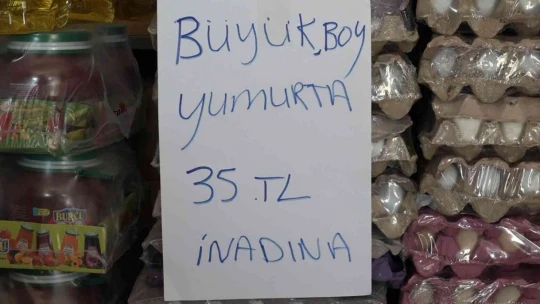 BÜYÜK BOY
YUMURTA
35 TL
İNADINA
BURCU